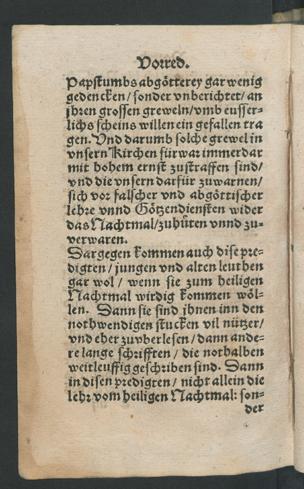 Vorred.
Papstumbs abgötterey gar wenig
gedencken/ sonder vnberichtet/ an
jhren grossen greweln/ vmb eusser-
lichs scheins willen ein gefallen tra
gen. Vnd darumb solche grewel in
vnsern Kirchen fürwar immerdar
mit hohem ernst zustraffen sind/
vnd die vnsern darfür zuwarnen/
sich vor falscher vnd abgöttischer
lehre vnnd Götzendiensten wider
das Nachtmal/ zuhüten vnnd zu-
verwaren.
Dargegen kommen auch dise pre-
digten/ jungen vnd alten leuthen
gar wol/ wenn sie zum heiligen
Nachtmal wirdig kommen wöl-
len. Dann sie sind jhnen inn den
nothwendigen stucken vil nützer/
vnd eher zuvberlesen/ dann ande-
re lange schrifften/ die nothalben
weitleuffig geschriben sind. Dann
in disen predigten/ nicht allein die
lehr vom heiligen Nachtmal: son-
der